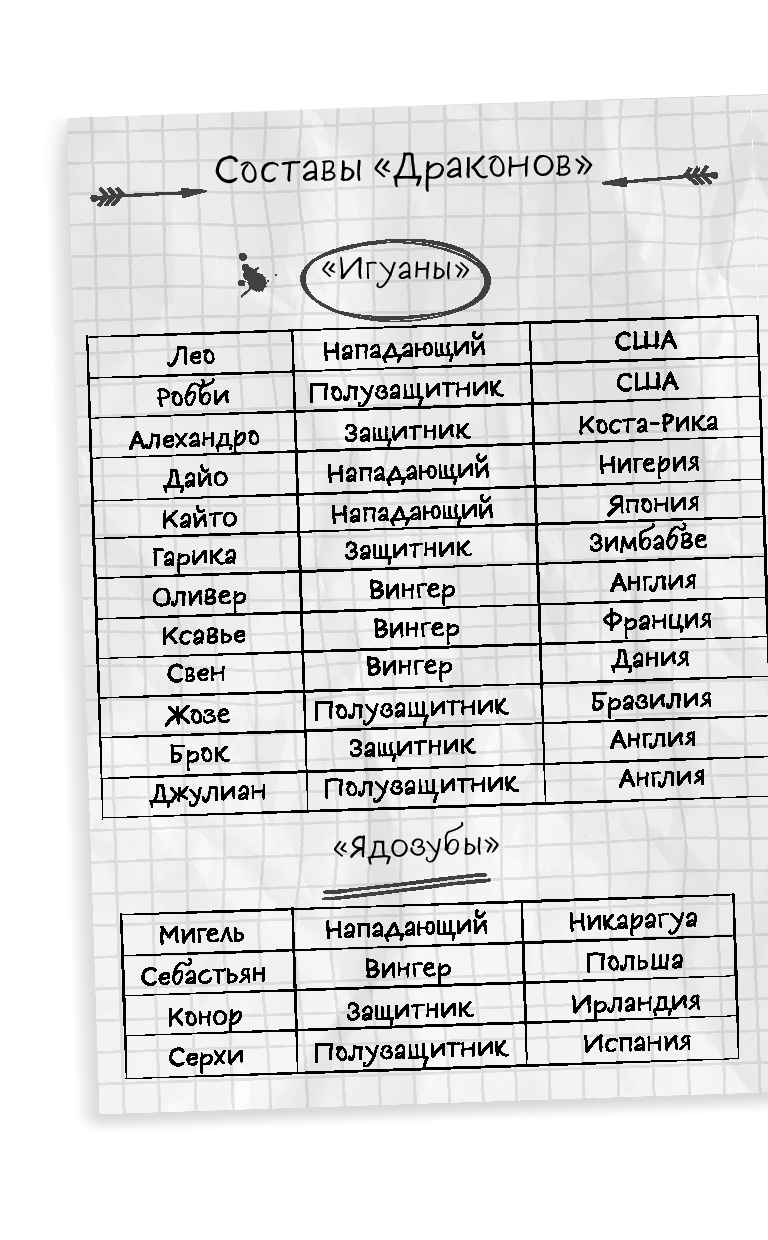 Составы «Драконов»
«Игуаны»
Лео Нападающий США
Робби Полузащитник США
Алехандро Защитник Коста-Рика
Дайо Нападающий Нигерия
Кайто Нападающий Япония
Гарика Защитник Зимбабве
Оливер Вингер Англия
Ксавье Вингер Франция
Свен Вингер Дания
Жозе Полузащитник Бразилия
Брок Защитник Англия
Джулиан Полузащитник Англия
«Ядозубы»
Мигель Нападающий Никарагуа
Себастьян Вингер Польша
Конор Защитник Ирландия
Серхи Полузащитник Испания